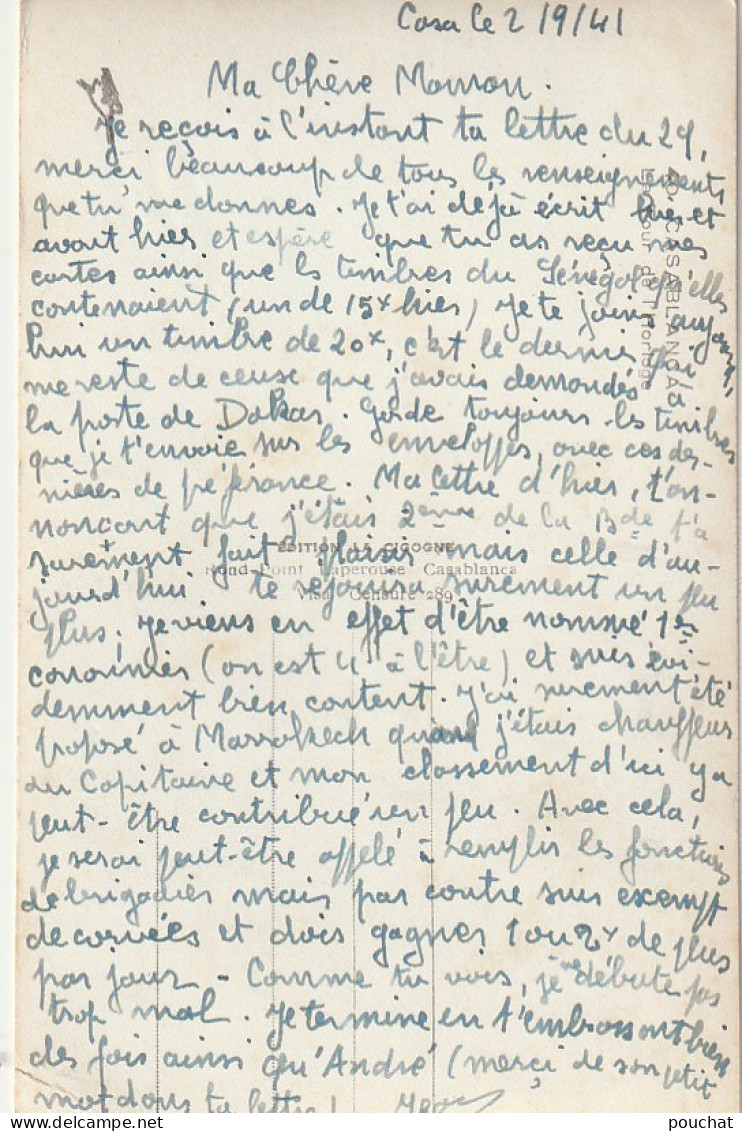 Casa le 2/9/41
Ma Chère Maman.
Je reçois à l'instant ta lettre du 29,
merci beaucoup de tous les renseignements
que tu me donnes. Je t'ai déjà écrit hier et
avant hier et espère que tu as reçu mes
cartes ainsi que les timbres du Sénégal qu'elles
contenaient (un de 15x hier) Je te joins aujourd'
hui un timbre de 20x, c'est le dernier qui
me reste de ceux que j'avais demandés à
la poste de Dakar. Garde toujours les timbres
que je t'envoie sur les enveloppes, avec ces der-
nières de préférance. Ma lettre d'hier, t'an-
nonçant que j'étais 2ème de la Bde t'a
surement fait plaisir mais celle d'au-
jourd'hui te rejouira surement un peu
plus; Je viens en effet d'être nommé 1er
canonnier (on est 4 à l'être) et suis évi-
demment bien content. J'ai surement été
proposé à Marrakech quand j'étais chauffeur
du Capitaine et mon classement d'ici y a
peut-être contribué un peu. Avec cela,
je serai peut-être appelé à remplir les fonctions
de brigadier mais par contre suis exempt
de corvées et dois gagner 1 ou 2x de plus
par jour - Comme tu vois, je ne débute pas
trop mal. Je termine en t'embrassant bien
des fois ainsi qu'André (merci de son petit
mot dans ta lettre)
40. CASABLANCA
La Tour de l'Horloge
EDITION LA CIGOGNE
Rond-Point Laperouse Casablanca
Visa Censure 289
pouchat